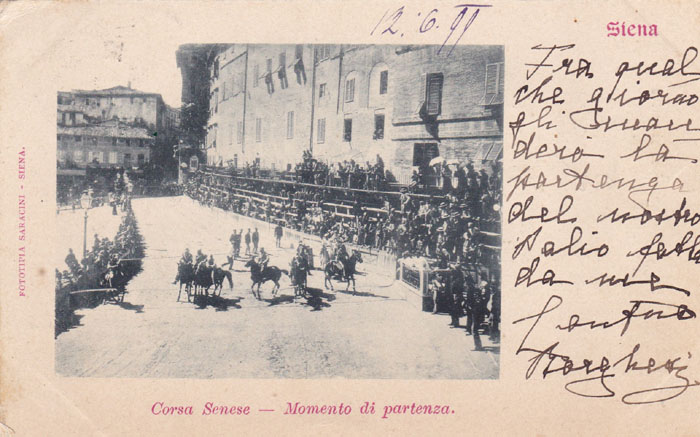 12.6.99
Siena
Fra qual
che giorno
gli man
derò la
partenza
del nostro
Palio fatta
da me
Borghesi
FOTOTIPIA SARACINI - SIENA.
Corsa Senese — Momento di partenza.